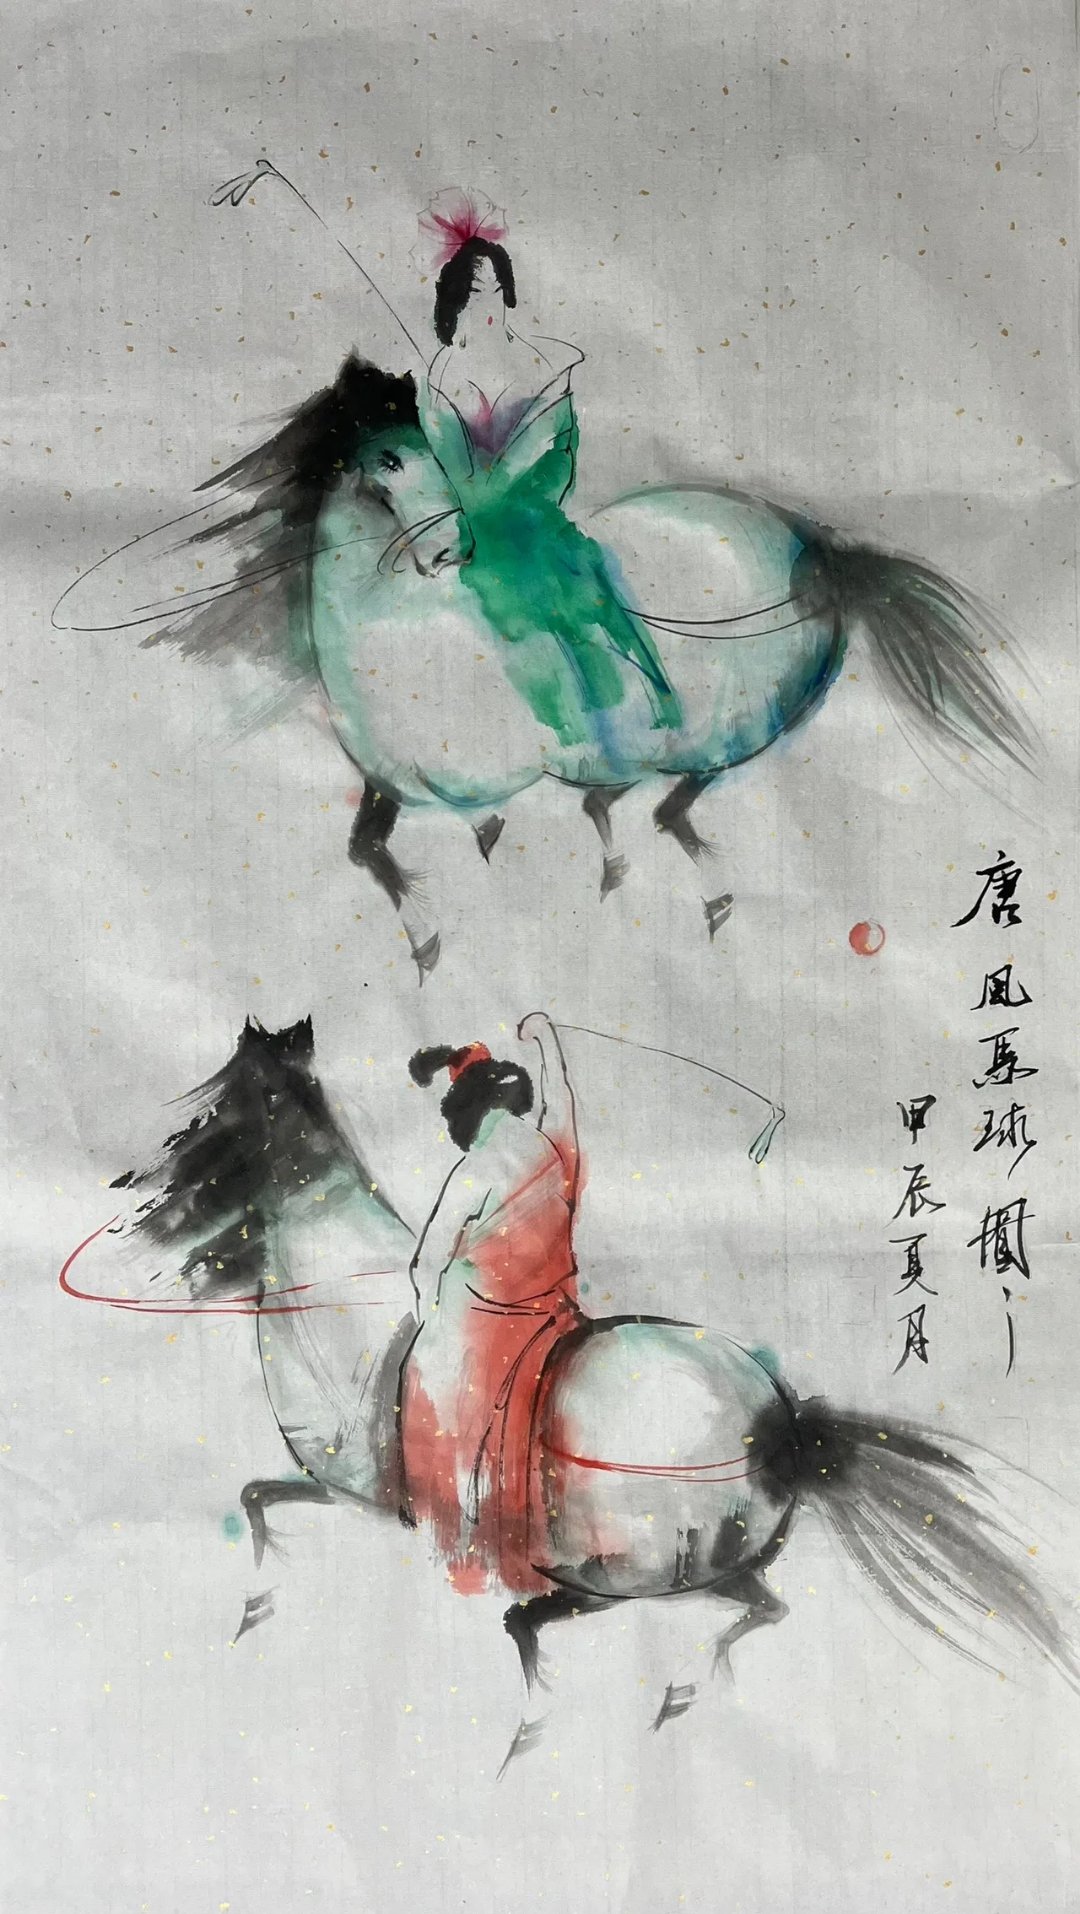 唐風馬球圖
甲辰夏月